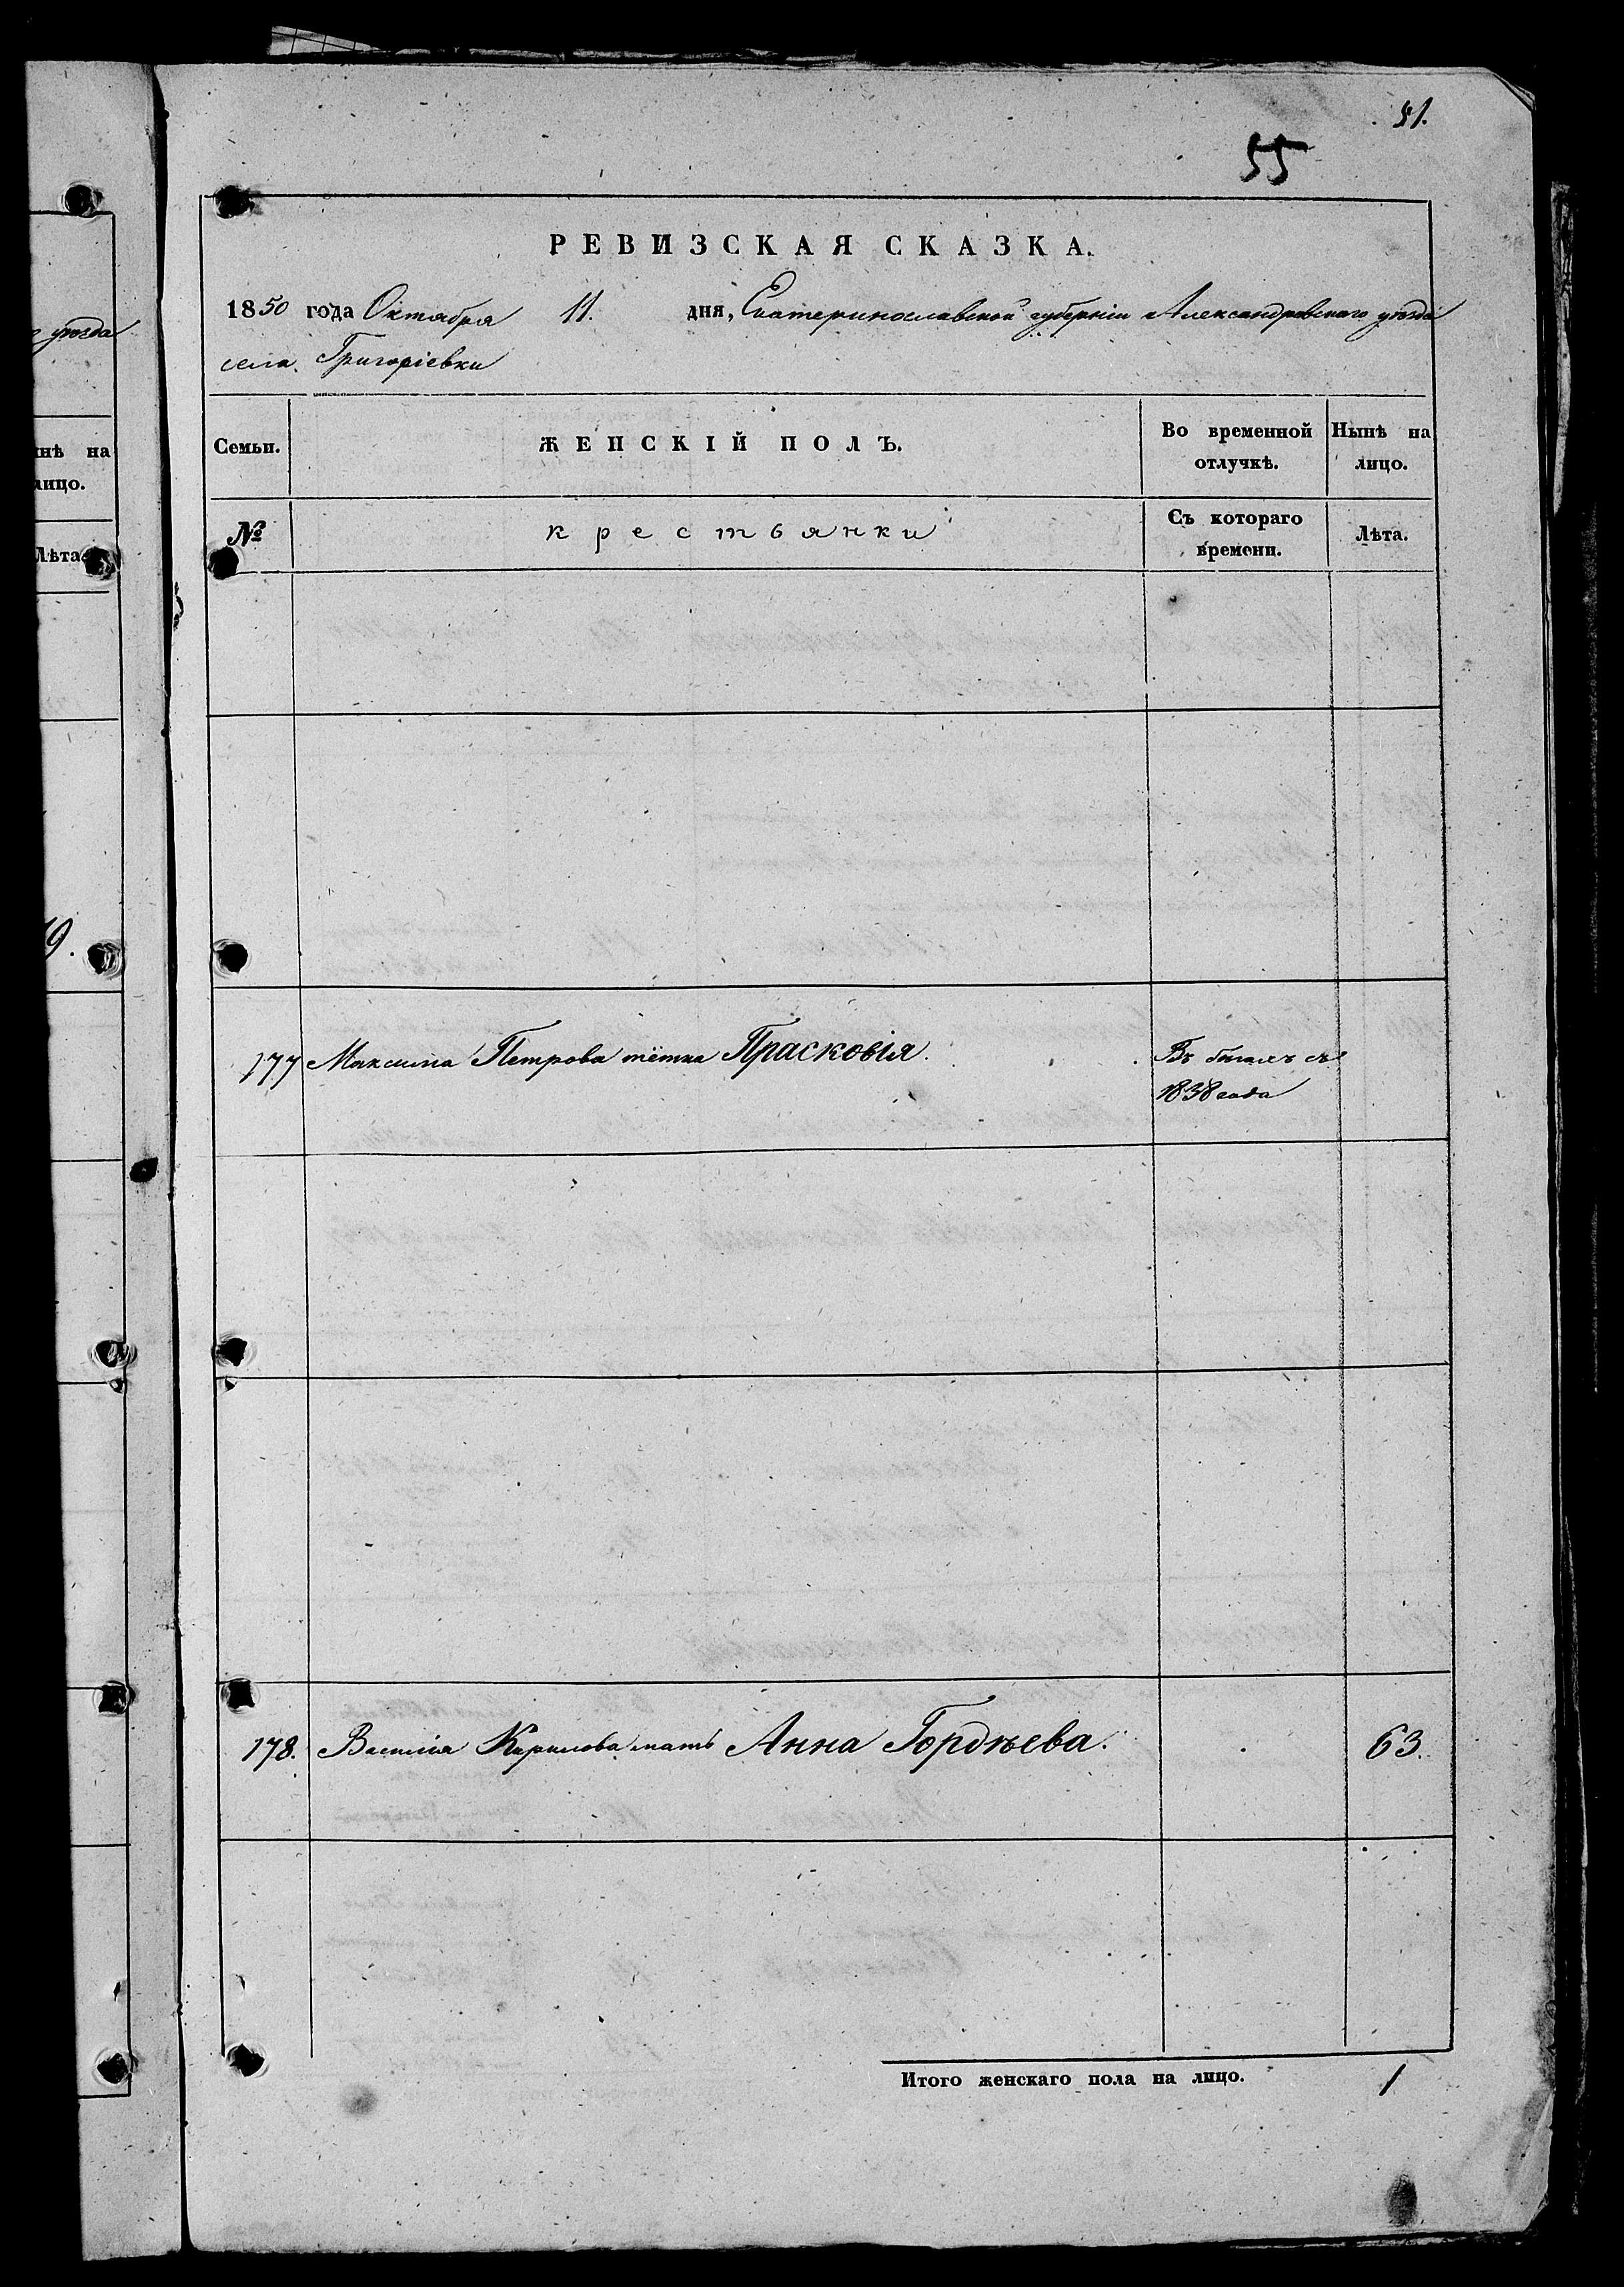 51.
55
РЕВИЗСКАЯ СКАЗКА.
1850 года Октября 11. дня, Екатеринославской губерніи Александровскаго уѣзда
села Григоріевки
Семьи. ЖЕНСКІЙ ПОЛЪ. Во временной отлучкѣ. Нынѣ на лицо.
№ крестьянки Съ котораго времени. Лѣта.
177 Максима Петрова тётка Прасковія. Въ бѣгахъ съ
1838 года
178. Василія Кирилова мать Анна Гордѣева. 63.
Итого женскаго пола на лицо. 1
уѣзда
нѣ на
лицо.
Лѣта
9.